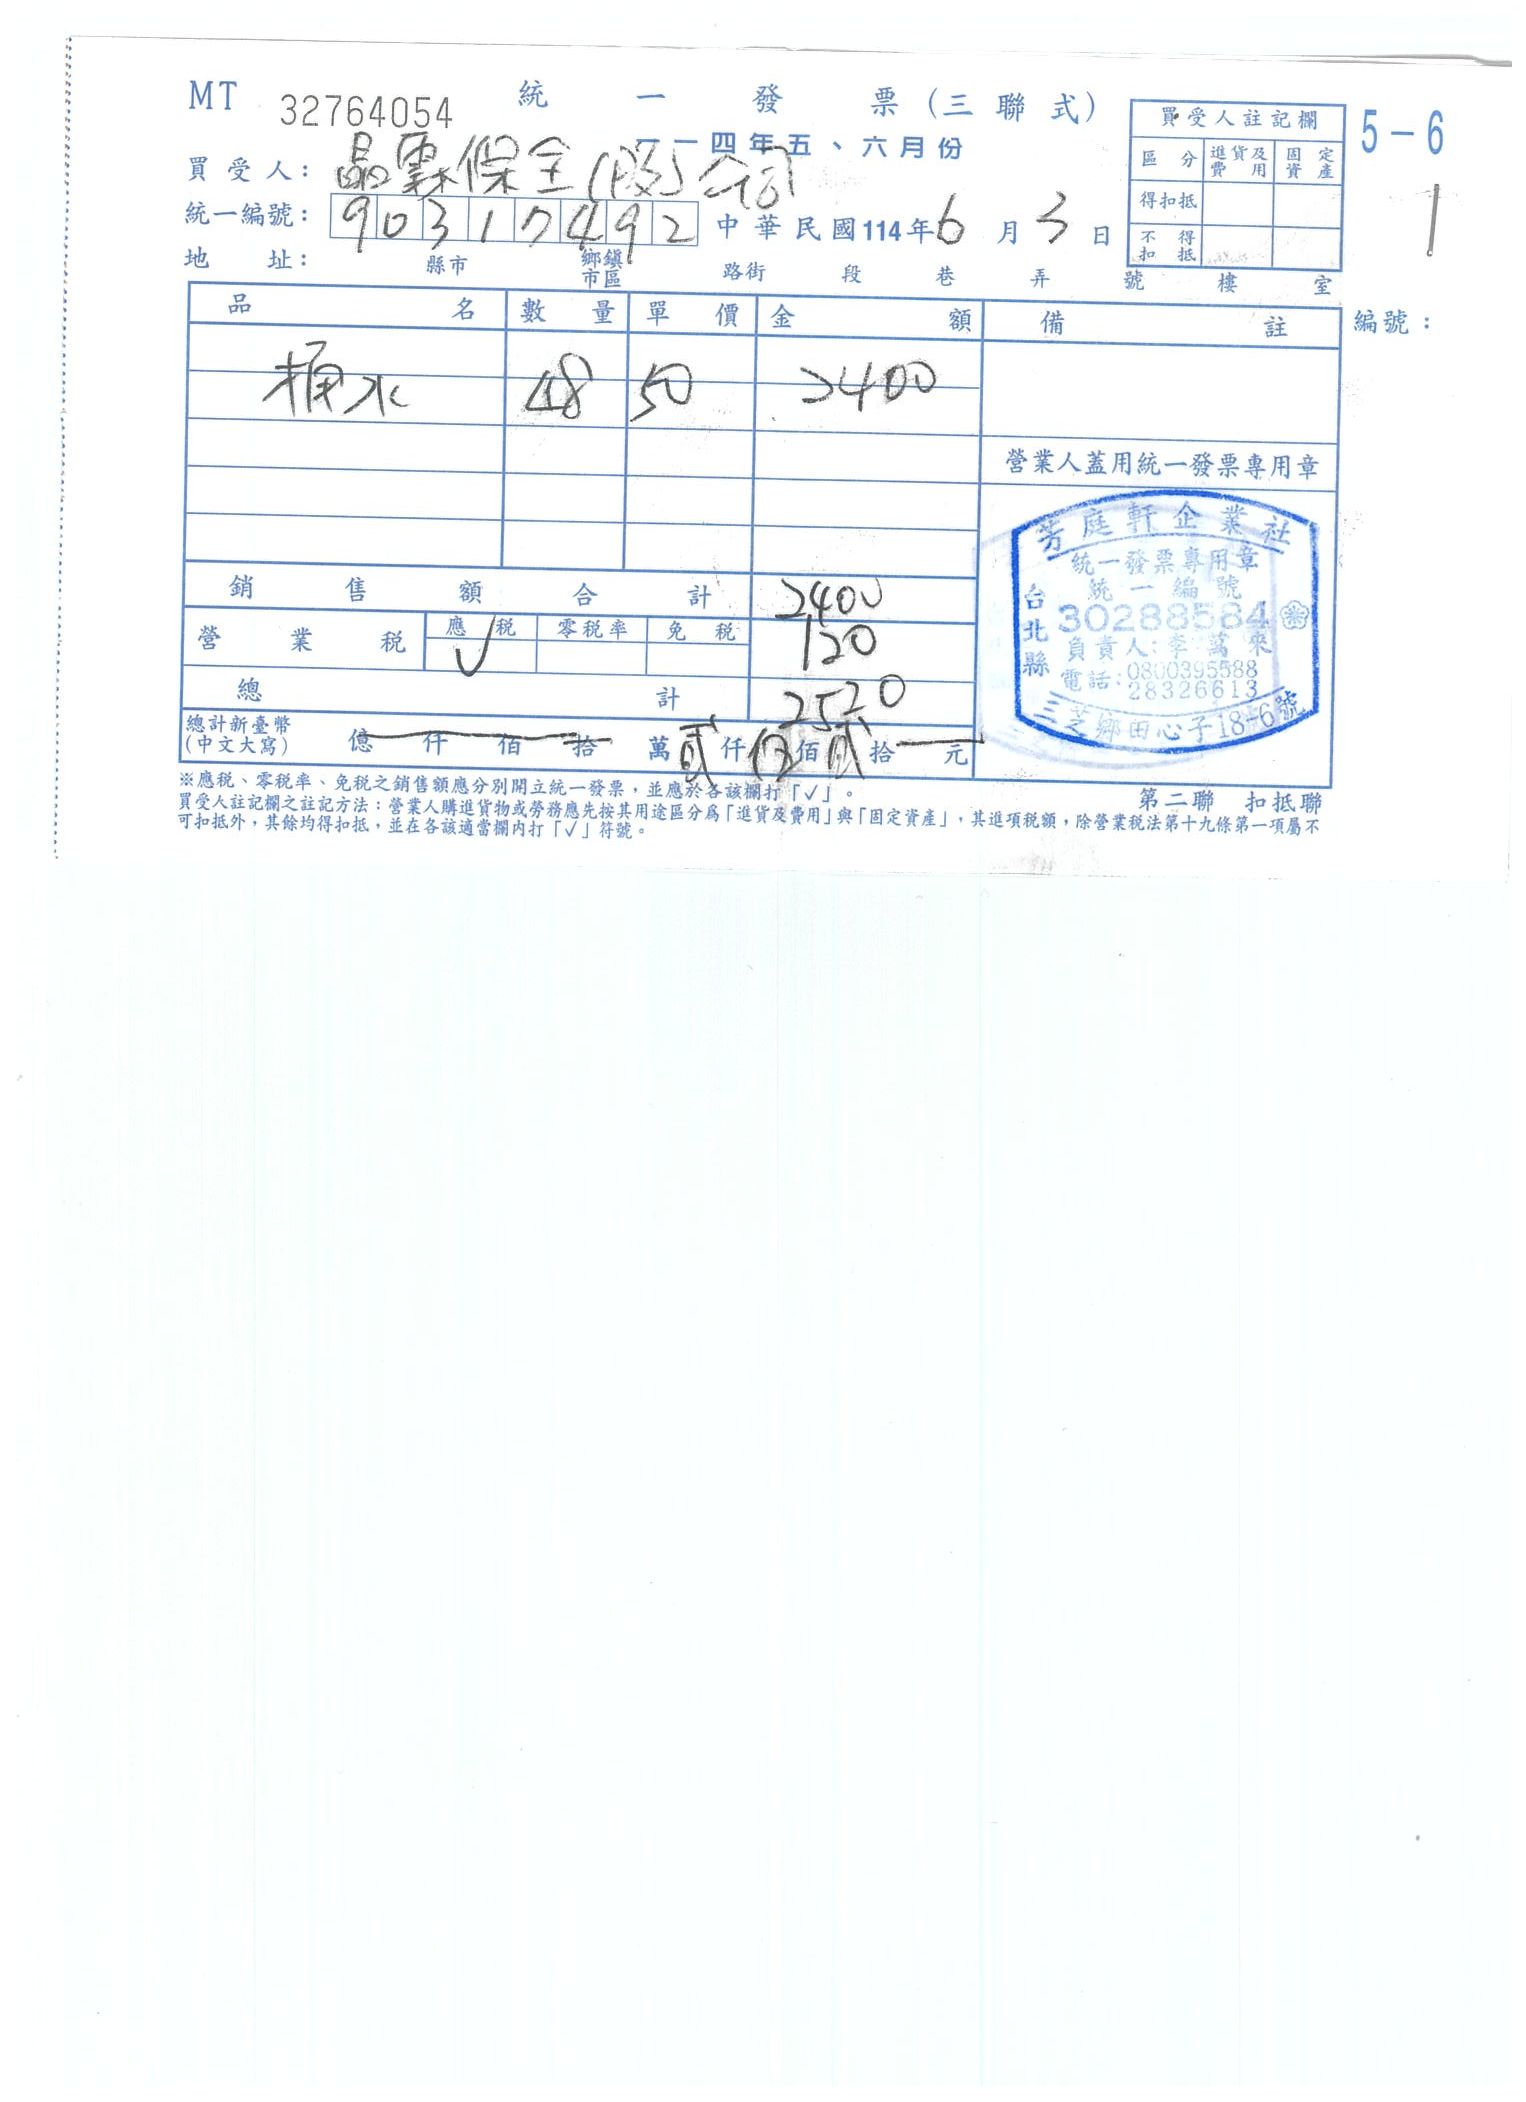 MT 32764054 統一發票(三聯式)
一一四年五、六月份
5-6
1
買受人: 晶霖保全(股)公司
統一編號: 90317492 中華民國114年6月3日
地址: 縣市 鄉鎮市區 路街 段 巷 弄 號 樓 室
買受人註記欄
區分 進貨及費用 固定資產
得扣抵
不得扣抵
編號:
品名 數量 單價 金額 備註
桶水 48 50 2400
營業人蓋用統一發票專用章
銷售額合計 2400
營業稅 應稅 ✓ 零稅率 免稅 120
總計 2520
總計新臺幣(中文大寫) 億 仟 佰 拾 萬 貳 仟 伍 佰 貳 拾 元
芳庭軒企業社
統一發票專用章
統一編號
30288584
台北縣
負責人:李萬來
電話:0800395588
28326613
三芝鄉田心子18-6號
※應稅、零稅率、免稅之銷售額應分別開立統一發票,並應於各該欄打「✓」。
第二聯 扣抵聯
買受人註記欄之註記方法:營業人購進貨物或勞務應先按其用途區分為「進貨及費用」與「固定資產」,其進項稅額,除營業稅法第十九條第一項屬不
可扣抵外,其餘均得扣抵,並在各該適當欄內打「✓」符號。